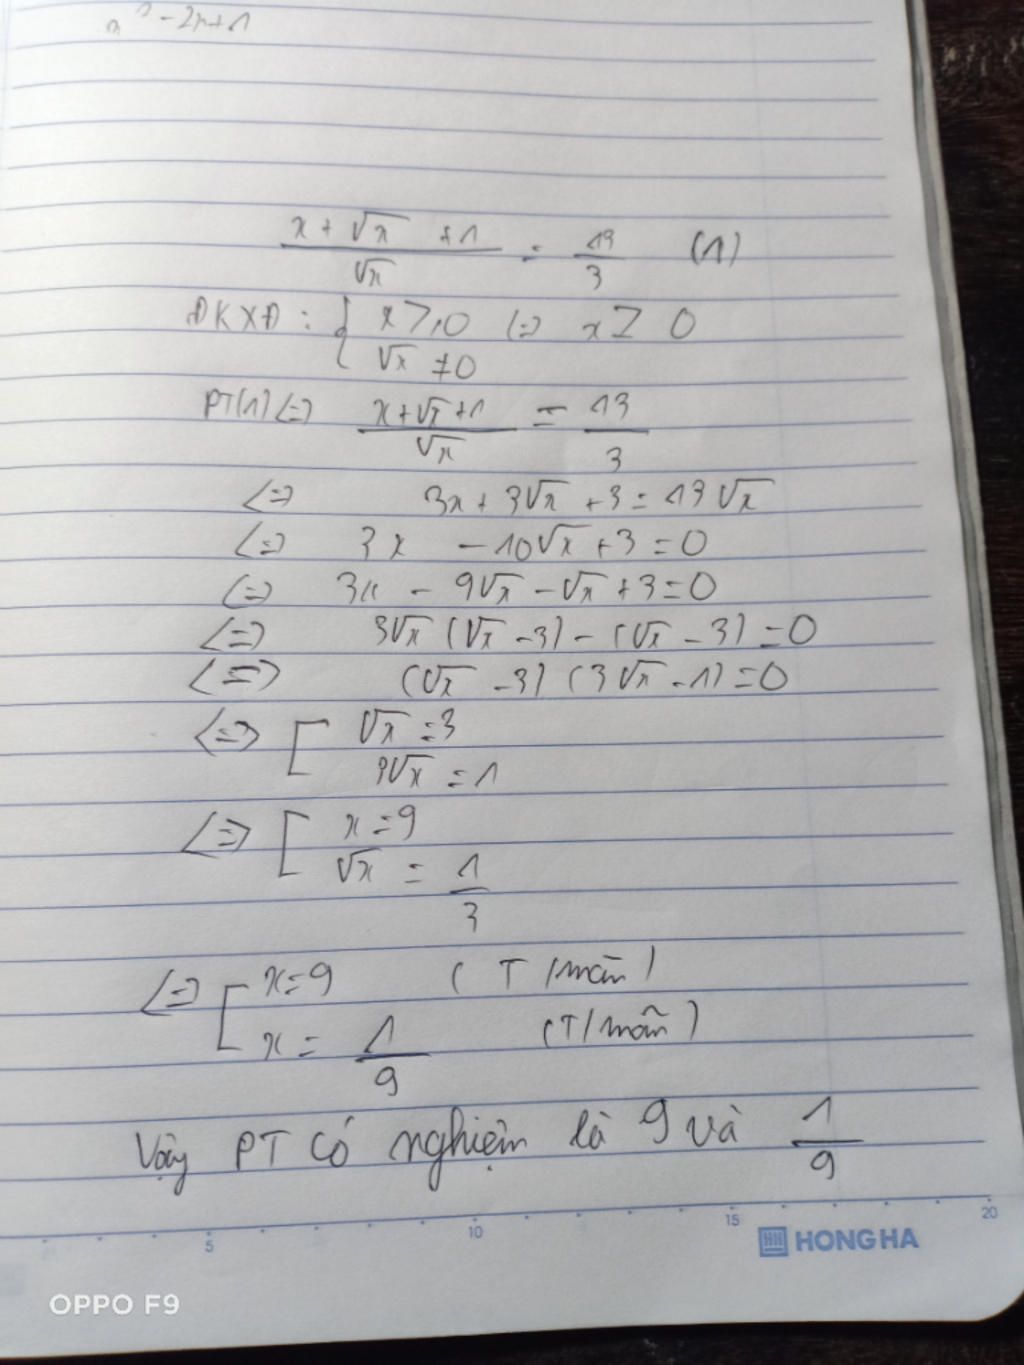 x² - 2x + 1
x + √x + 1 / √x = 13 / 3 (1)
ĐKXĐ : { x ⩾ 0 (=) x > 0
√x ≠ 0
PT(1) <=> x + √x + 1 / √x = 13 / 3
<=> 3x + 3√x + 3 = 13√x
<=> 3x - 10√x + 3 = 0
<=> 3x - 9√x - √x + 3 = 0
<=> 3√x (√x - 3) - (√x - 3) = 0
<=> (√x - 3) (3√x - 1) = 0
<=> [ √x = 3
3√x = 1
<=> [ x = 9
√x = 1 / 3
<=> [ x = 9 (T/mãn)
x = 1 / 9 (T/mãn)
Vậy PT có nghiệm là 9 và 1 / 9
5 10 15 20
HONG HA
OPPO F9